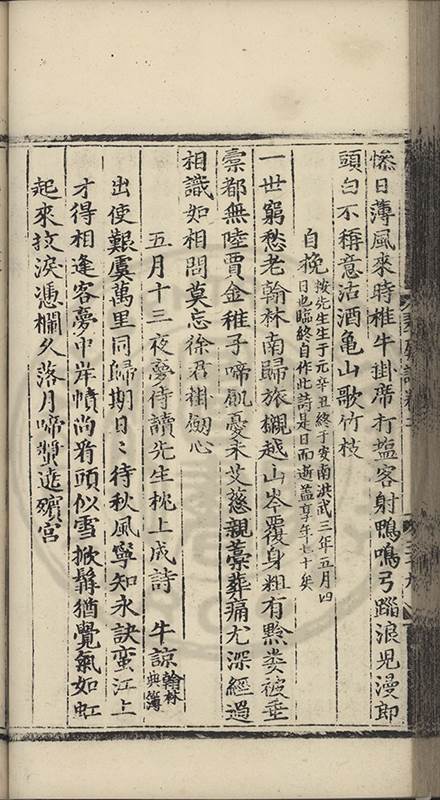 慘日薄風來時椎牛掛席打塩客射鴨鳴弓蹋浪児漫郎
頭白不稱意沽酒亀山歌竹枝
自挽 按先生生于元辛丑終于安南洪武三年五月四
日也臨終自作此詩是日而逝盖享年七十矣
一世窮愁老翰林南歸旅櫬越山岑覆身粗有黔婁被垂
橐都無陸賈金稚子啼飢憂未艾慈親藁葬痛尤深經過
相識如相問莫忘徐君掛劔心
五月十三夜夢侍讀先生枕上成詩 牛諒 翰林
典簿
出使艱虞萬里同歸期日〻待秋風寧知永訣蛮江上
才得相逢客夢中岸幘尚看頭似雪掀髯猶覺氣如虹
起來抆淚憑欄久落月啼螿遶殯宮